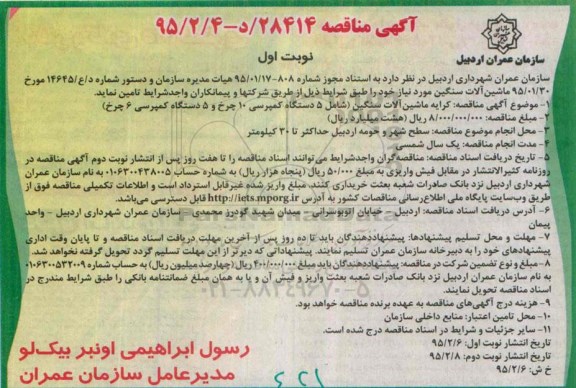 آگهی مناقصه ۲۸۴۱۴/د-۹۵/۲/۴
سازمان عمران اردبیل
نوبت اول
سازمان عمران شهرداری اردبیل در نظر دارد به استناد مجوز شماره ۸۰۸-۹۵/۰۱/۱۷ هیات مدیره سازمان و دستور شماره د/ع/۱۴۶۴۵ مورخ
۹۵/۰۱/۳۰ ماشین آلات سنگین مورد نیاز خود را طبق شرایط ذیل از طریق شرکتها و پیمانکاران واجدشرایط تامین نماید.
۱- موضوع آگهی مناقصه: کرایه ماشین آلات سنگین (شامل ۵ دستگاه کمپرسی ۱۰ چرخ و ۵ دستگاه کمپرسی ۶ چرخ)
۲- مبلغ مناقصه: ۸/۰۰۰/۰۰۰/۰۰۰ ریال (هشت میلیارد ریال)
۳- محل انجام موضوع مناقصه: سطح شهر و حومه اردبیل حداکثر تا ۳۰ کیلومتر
۴- مدت انجام مناقصه: یک سال شمسی
۵- تاریخ دریافت اسناد مناقصه: مناقصه‌گران واجدشرایط می‌توانند اسناد مناقصه را تا هفت روز پس از انتشار نوبت دوم آگهی مناقصه در
روزنامه کثیرالانتشار در مقابل فیش واریزی به مبلغ ۵۰/۰۰۰ ریال (پنجاه هزار ریال) به شماره حساب ۰۱۰۶۳۰۰۴۳۸۰۰۵ به نام سازمان عمران
شهرداری اردبیل نزد بانک صادرات شعبه بعثت خریداری کنند. مبلغ واریز شده غیرقابل استرداد است و اطلاعات تکمیلی مناقصه فوق از
طریق وب‌سایت پایگاه ملی اطلاع‌رسانی مناقصات کشور به آدرس http://iets.mporg.ir قابل دسترسی می‌باشد.
۶- آدرس دریافت اسناد مناقصه: اردبیل - خیابان اتوبوسرانی - میدان شهید گودرز محمدی - سازمان عمران شهرداری اردبیل - واحد
پیمان
۷- مهلت و محل تسلیم پیشنهادها: پیشنهاددهندگان باید تا ده روز پس از آخرین مهلت دریافت اسناد مناقصه و تا پایان وقت اداری
پیشنهادهای خود را به دبیرخانه سازمان عمران تسلیم نمایند. پیشنهاداتی که دیرتر از این مهلت تسلیم گردد تحویل گرفته نخواهد شد.
۸- مبلغ و نوع تضمین شرکت در مناقصه: پیشنهاددهندگان باید مبلغ ۴۰۰/۰۰۰/۰۰۰ ریال (چهارصد میلیون ریال) به حساب شماره ۰۱۰۶۳۰۰۵۳۲۰۰۹
به نام سازمان عمران اردبیل نزد بانک صادرات شعبه بعثت واریز و فیش آن و یا به همان مبلغ ضمانتنامه بانکی را طبق شرایط مندرج در
اسناد مناقصه تحویل نمایند.
۹- هزینه درج آگهی‌های مناقصه به عهده برنده مناقصه خواهد بود.
۱۰- محل تامین اعتبار: منابع داخلی سازمان
۱۱- سایر جزئیات و شرایط در اسناد مناقصه درج شده است.
تاریخ انتشار نوبت اول: ۹۵/۲/۶
تاریخ انتشار نوبت دوم: ۹۵/۲/۸
خ ش: ۹۵/۲/۶
رسول ابراهیمی اونبر بیک‌لو
مدیرعامل سازمان عمران